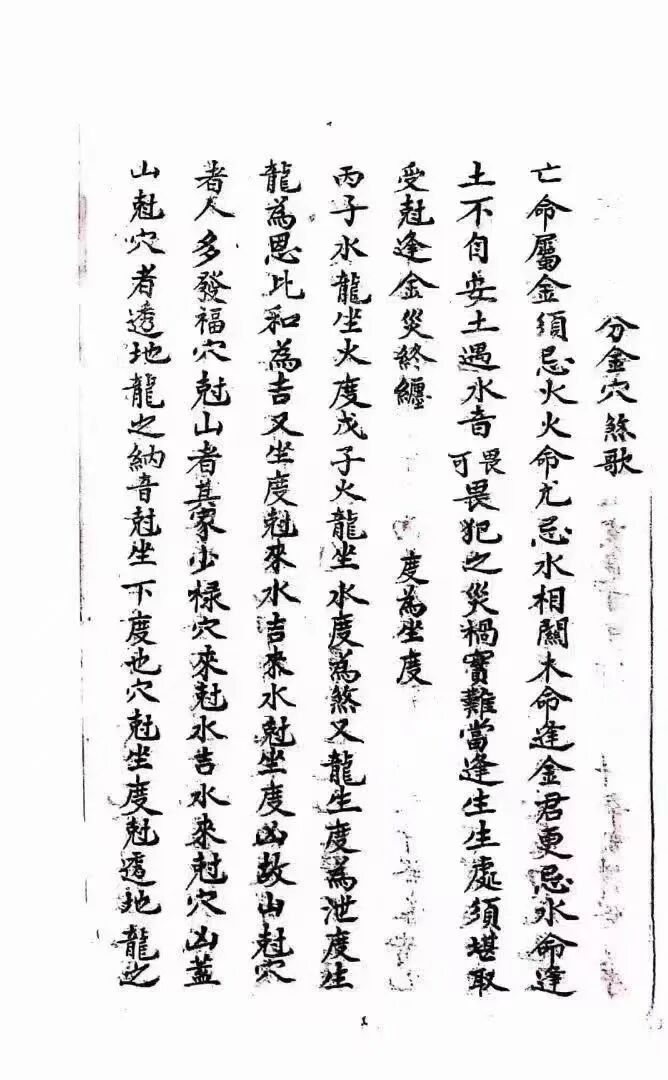 分金穴煞歌
亡命屬金須忌火火命尤忌水相關木命逢金君更忌水命逢
土不自安土遇水音可畏畏犯之災禍實難當逢生生處須堪取
受尅逢金災終纏 度為坐度
丙子水龍坐火度戊子火龍坐水度為煞又龍生度為泄度生
龍為恩比和為吉又坐度尅來水吉來水尅坐度凶故山尅穴
者人多發福穴尅山者其家少祿穴來尅水吉水來尅穴凶蓋
山尅穴者透地龍之納音尅坐下度也穴尅坐度尅透地龍之
1